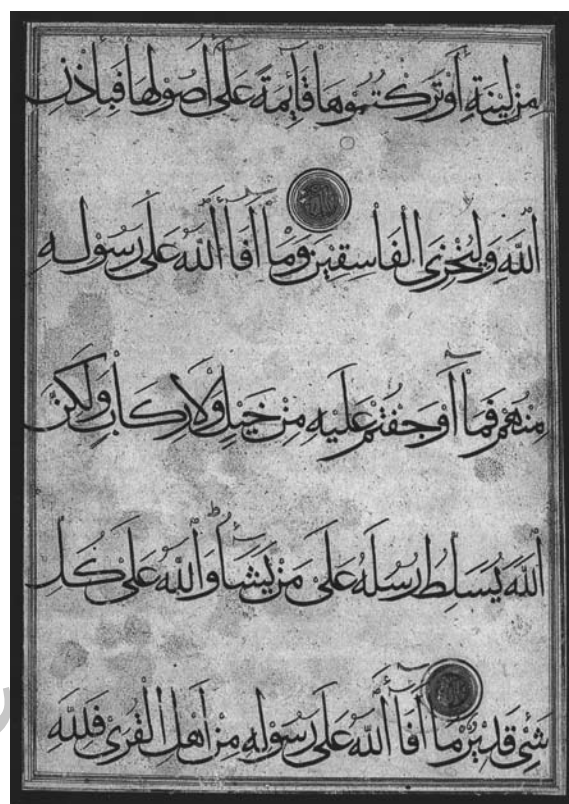 مِنْ لِينَةٍ أَوْ تَرَكْتُمُوهَا قَآئِمَةً عَلَىٰ أُصُولِهَا فَبِإِذْنِ
اللَّهِ وَلِيُخْزِيَ الْفَاسِقِينَ وَمَا أَفَاءَ اللَّهُ عَلَىٰ رَسُولِهِ
مِنْهُمْ فَمَا أَوْجَفْتُمْ عَلَيْهِ مِنْ خَيْلٍ وَلَا رِكَابٍ وَلَكِنَّ
اللَّهَ يُسَلِّطُ رُسُلَهُ عَلَىٰ مَنْ يَشَاءُ وَاللَّهُ عَلَىٰ كُلِّ
شَيْءٍ قَدِيرٌ مَا أَفَاءَ اللَّهُ عَلَىٰ رَسُولِهِ مِنْ أَهْلِ الْقُرَىٰ فَلِلَّهِ